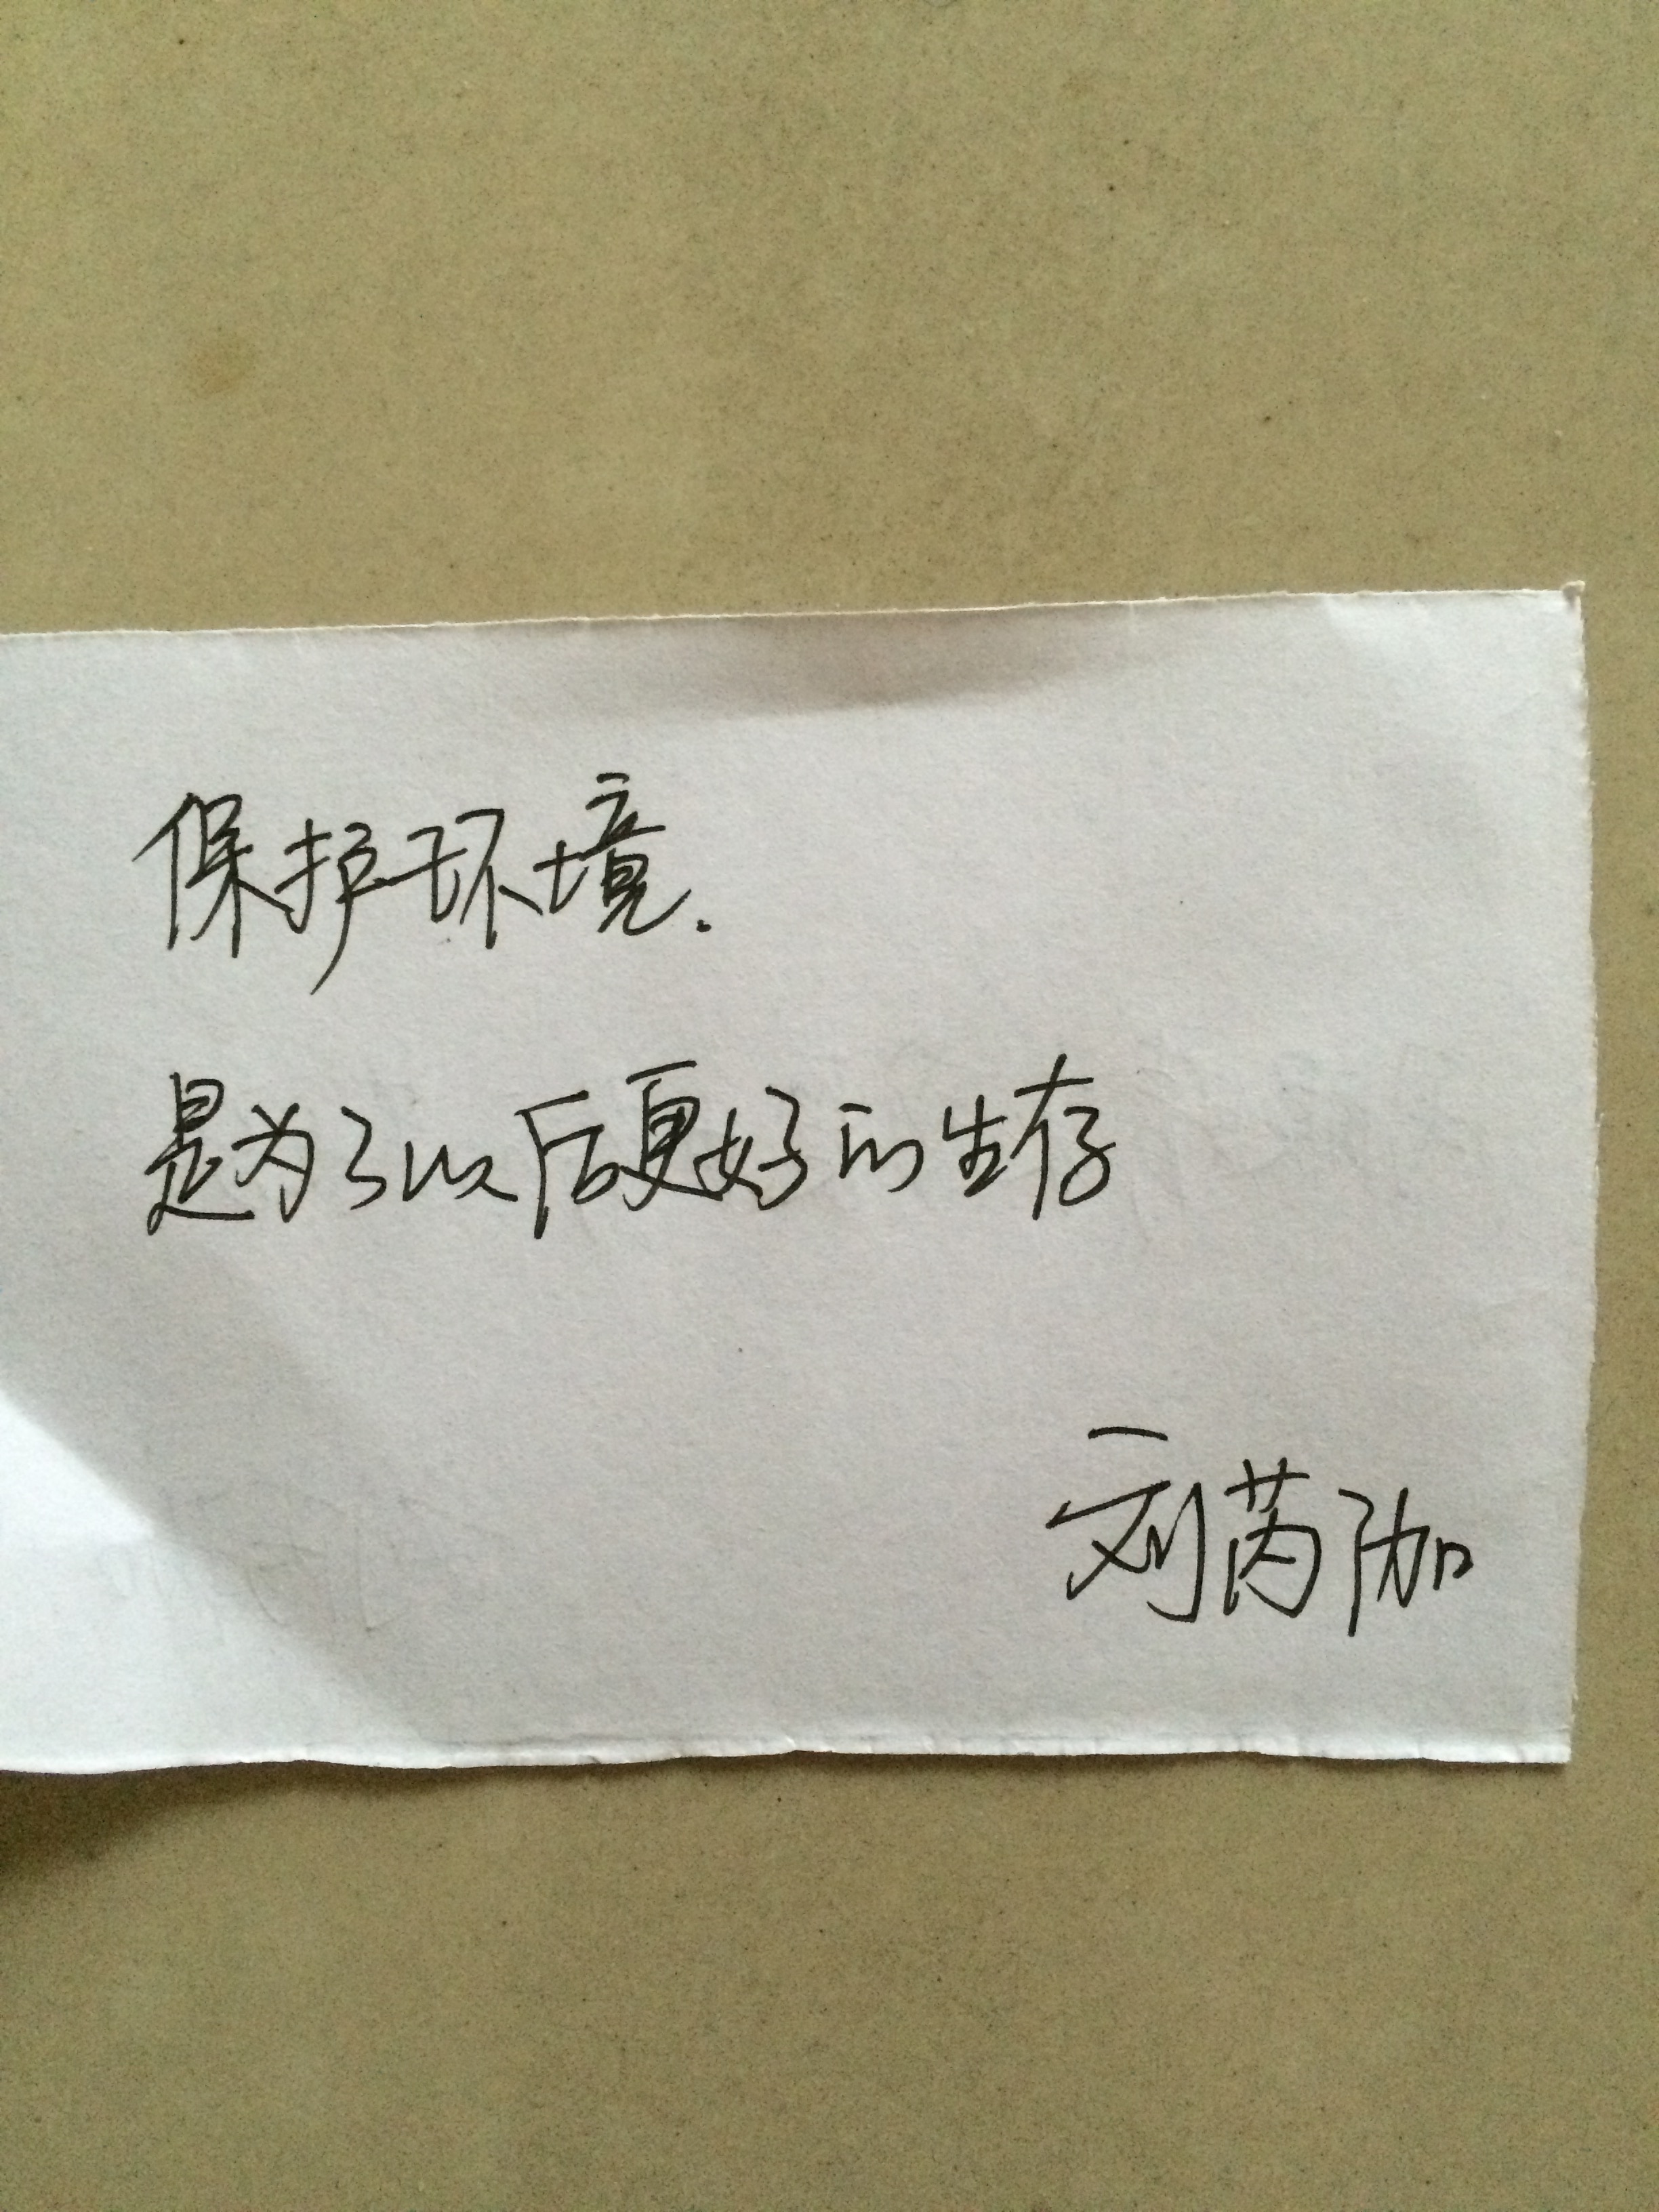 保护环境.
是为了以后更好的生存
刘芮伽